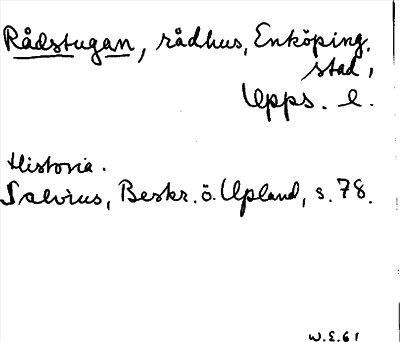 Rådstugan, rådhus, Enköping,
stad,
Upps. l.
Historia.
Salvius, Beskr. ö. Upland, s. 78.
W.E.61